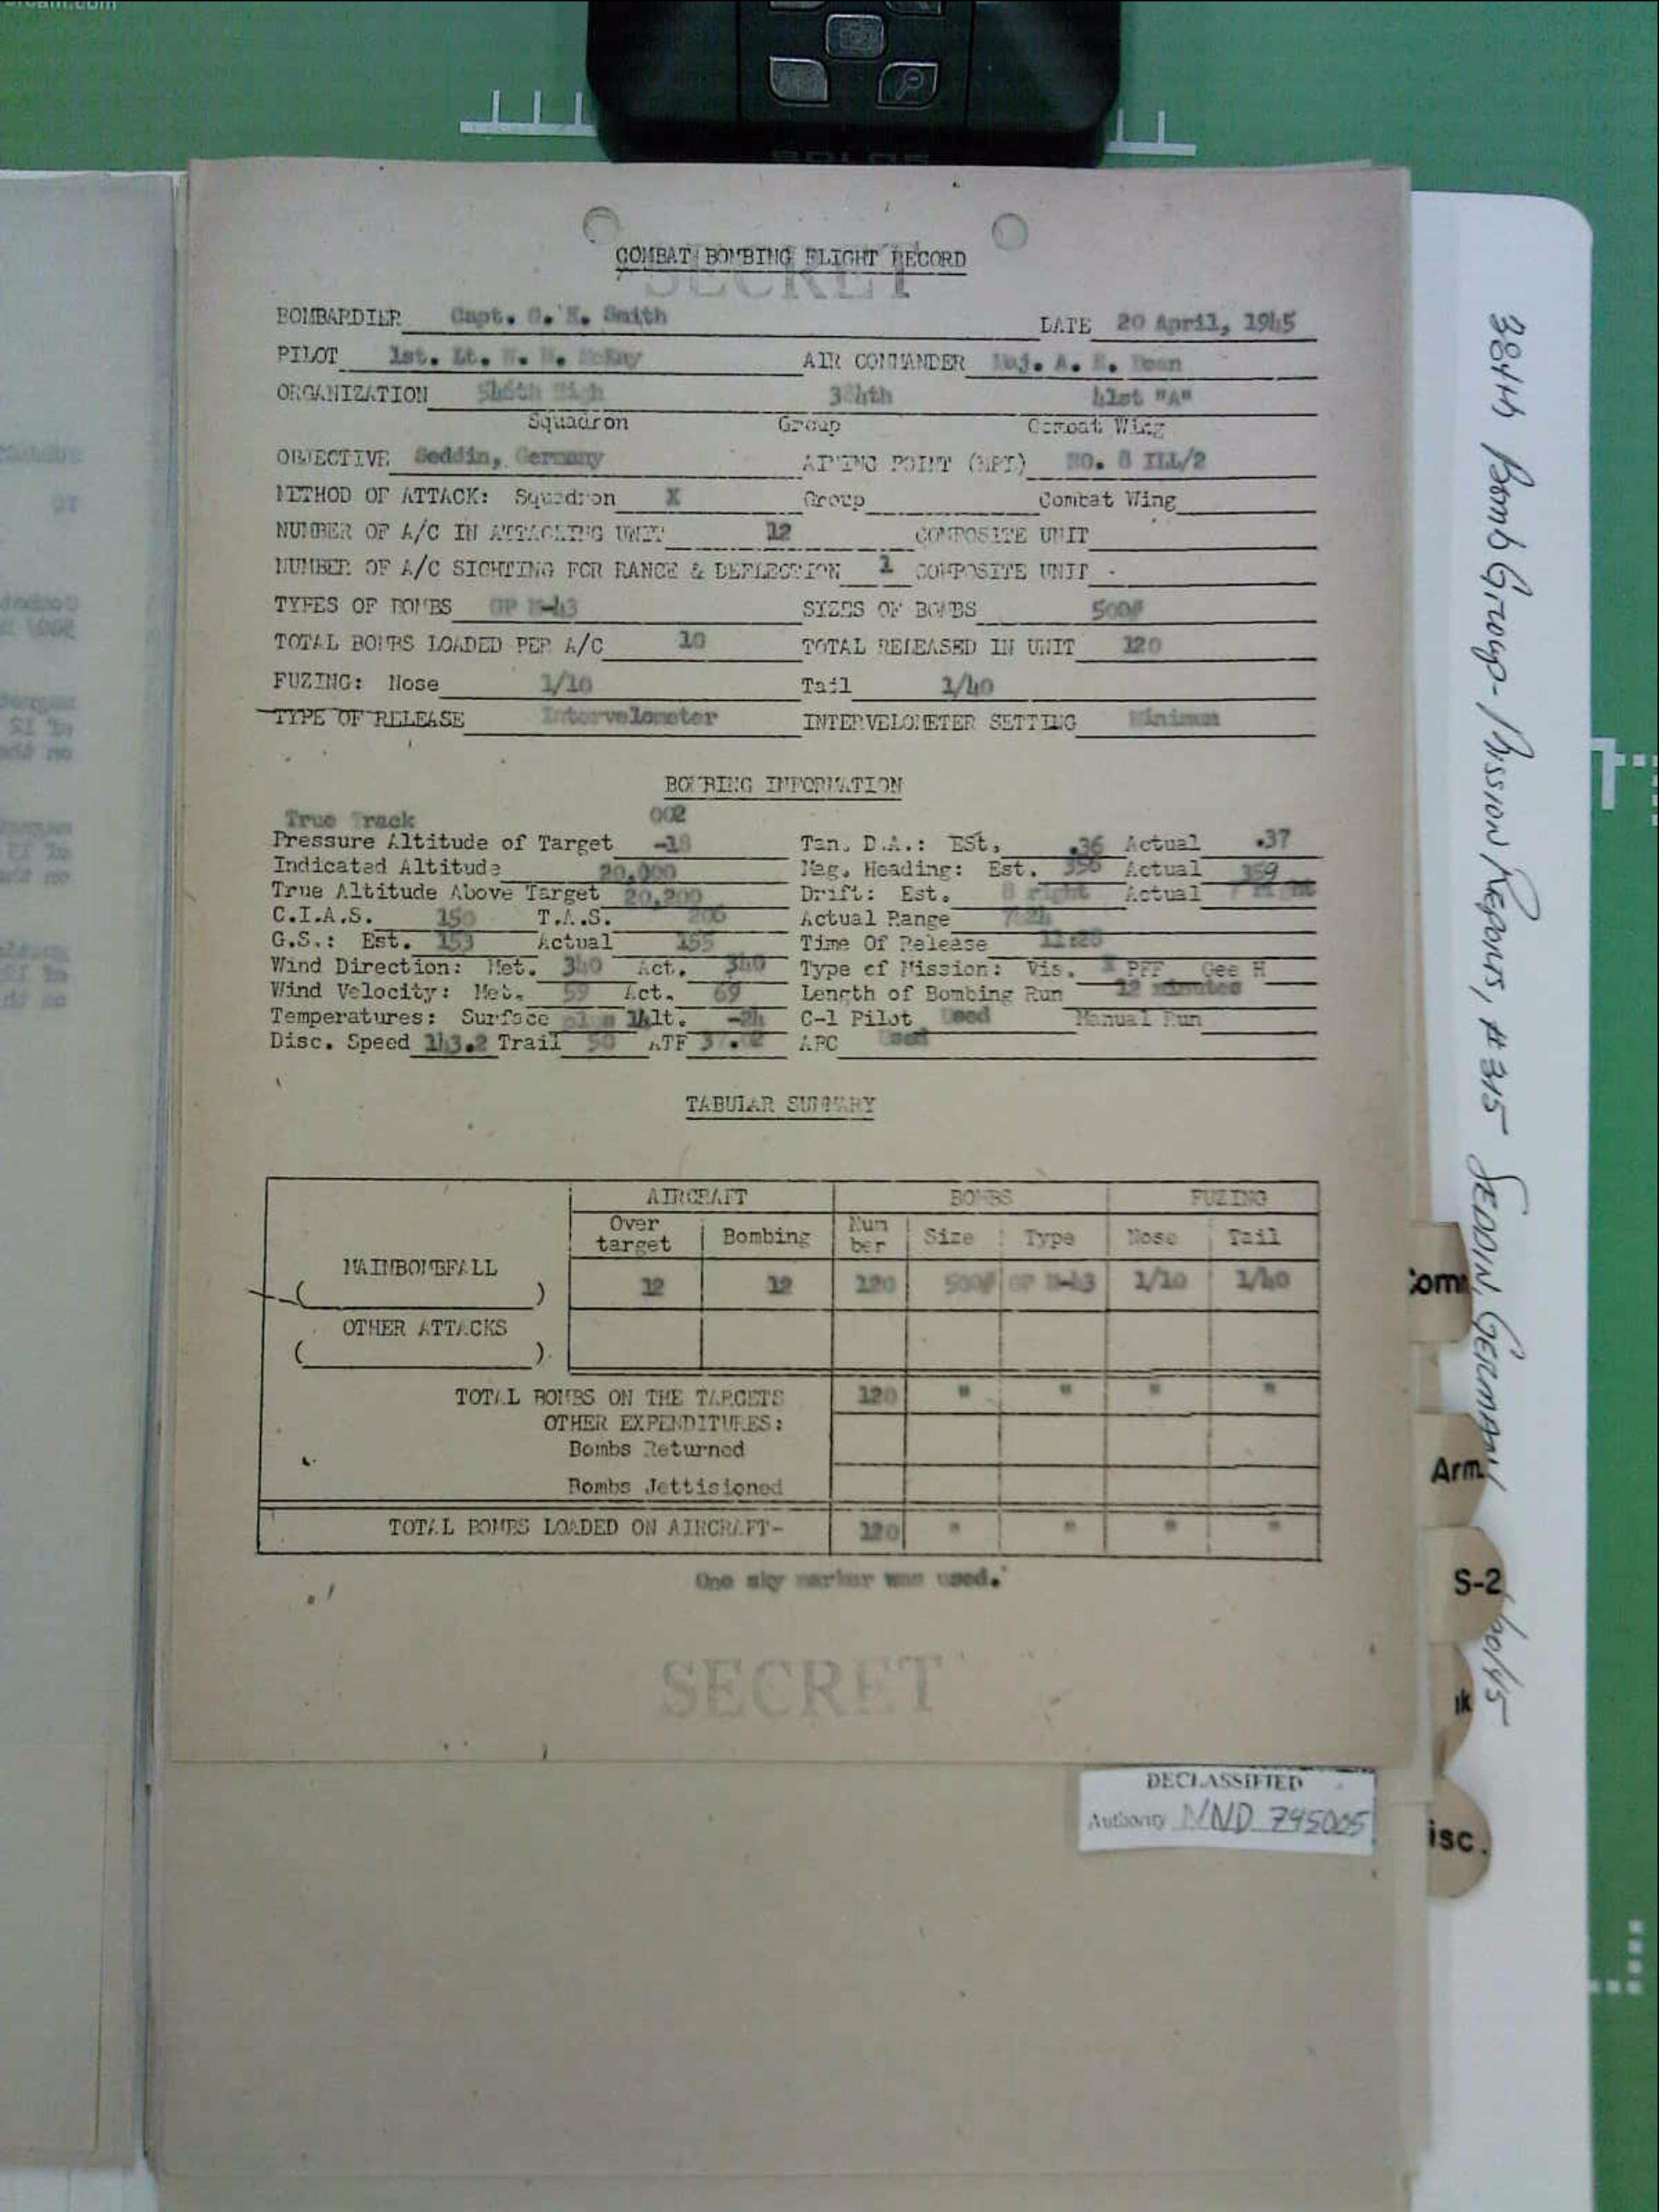 COMBAT BOMBING FLIGHT RECORD
SECRET
BOMBARDIER Capt. Smith DATE 20 April, 1945
PILOT 1st. Lt. McKay AIR COMMANDER Maj. A.
ORGANIZATION 546th High 384th 41st "A"
Squadron Group Combat Wing
OBJECTIVE Seddin, Germany AIMING POINT (MPI) NO. 8 ILL/2
METHOD OF ATTACK: Squadron X Group Combat Wing
NUMBER OF A/C IN ATTACKING UNIT 12 COMPOSITE UNIT
NUMBER OF A/C SIGHTING FOR RANGE & DEFLECTION 1 COMPOSITE UNIT -
TYPES OF BOMBS GP M-43 SIZES OF BOMBS 500#
TOTAL BOMBS LOADED PER A/C 10 TOTAL RELEASED IN UNIT 120
FUZING: Nose 1/10 Tail 1/40
TYPE OF RELEASE Intervelometer INTERVELOMETER SETTING Minimum
BOMBING INFORMATION
True Track 002
Pressure Altitude of Target -18 Tan. D.A.: Est. .36 Actual .37
Indicated Altitude 20,000 Mag. Heading: Est. 356 Actual 359
True Altitude Above Target 20,200 Drift: Est. 8 right Actual 7 right
C.I.A.S. 150 T.A.S. 206 Actual Range
G.S.: Est. 153 Actual 155 Time Of Release 11:28
Wind Direction: Met. 340 Act. 340 Type of Mission: Vis. X PFF Gee H
Wind Velocity: Met. 59 Act. 69 Length of Bombing Run 12 minutes
Temperatures: Surface plus 14 Alt. -24 C-1 Pilot Used Manual Run
Disc. Speed 143.2 Trail 50 ATF 37.02 AFC Used
TABULAR SUMMARY
AIRCRAFT BOMBS FUZING
Over target Bombing Number Size Type Nose Tail
MAINBOMBFALL
( ) 12 12 120 500# GP M-43 1/10 1/40
OTHER ATTACKS
( )
TOTAL BOMBS ON THE TARGETS 120 " " " "
OTHER EXPENDITURES:
Bombs Returned
Bombs Jettisioned
TOTAL BOMBS LOADED ON AIRCRAFT- 120 " " " "
One sky marker was used.
SECRET
DECLASSIFIED
Authority NND 745005
384th Bomb Group - Mission Reports, #315 SEDDIN, GERMANY
Com
Arm
S-2
isc.